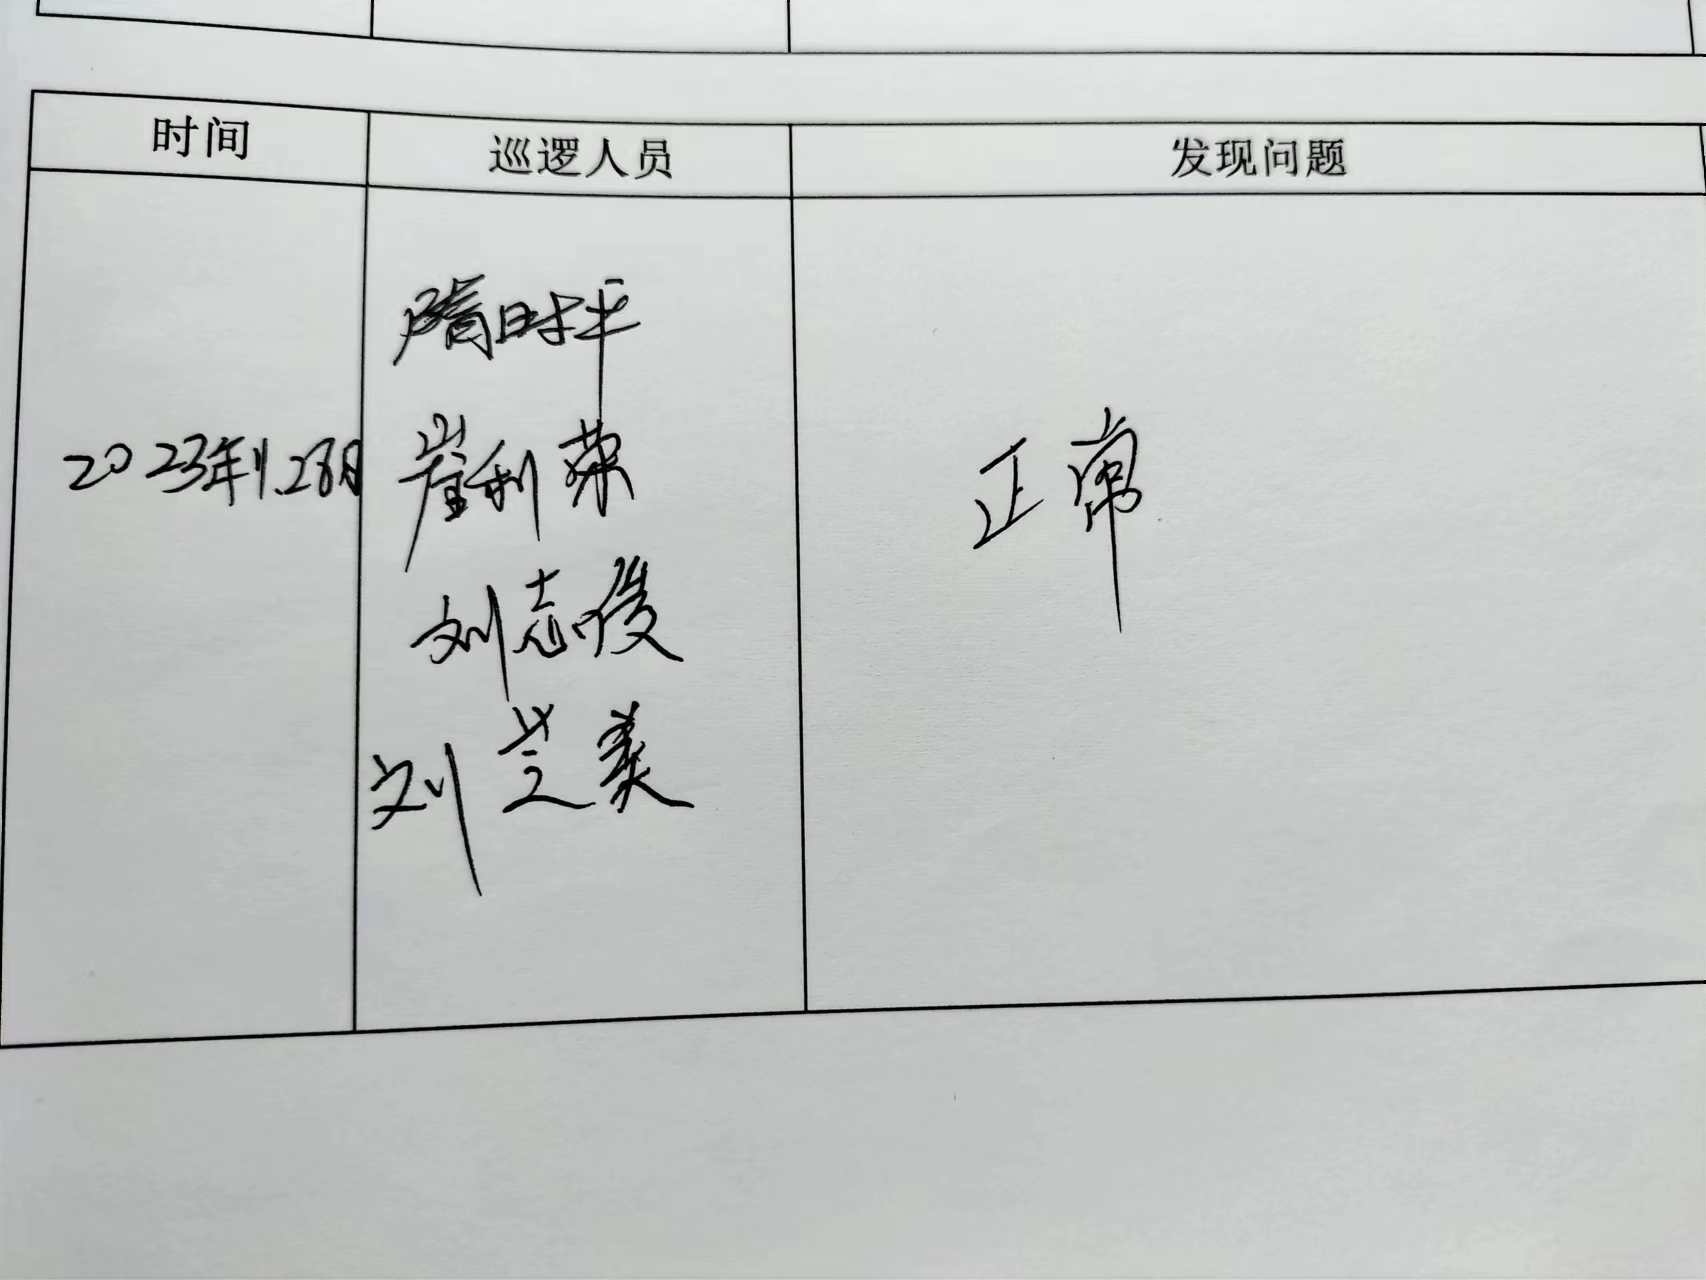 时间 巡逻人员 发现问题
隋时平
2023年1.28日 崔利荣 正常
刘志俊
刘芝美